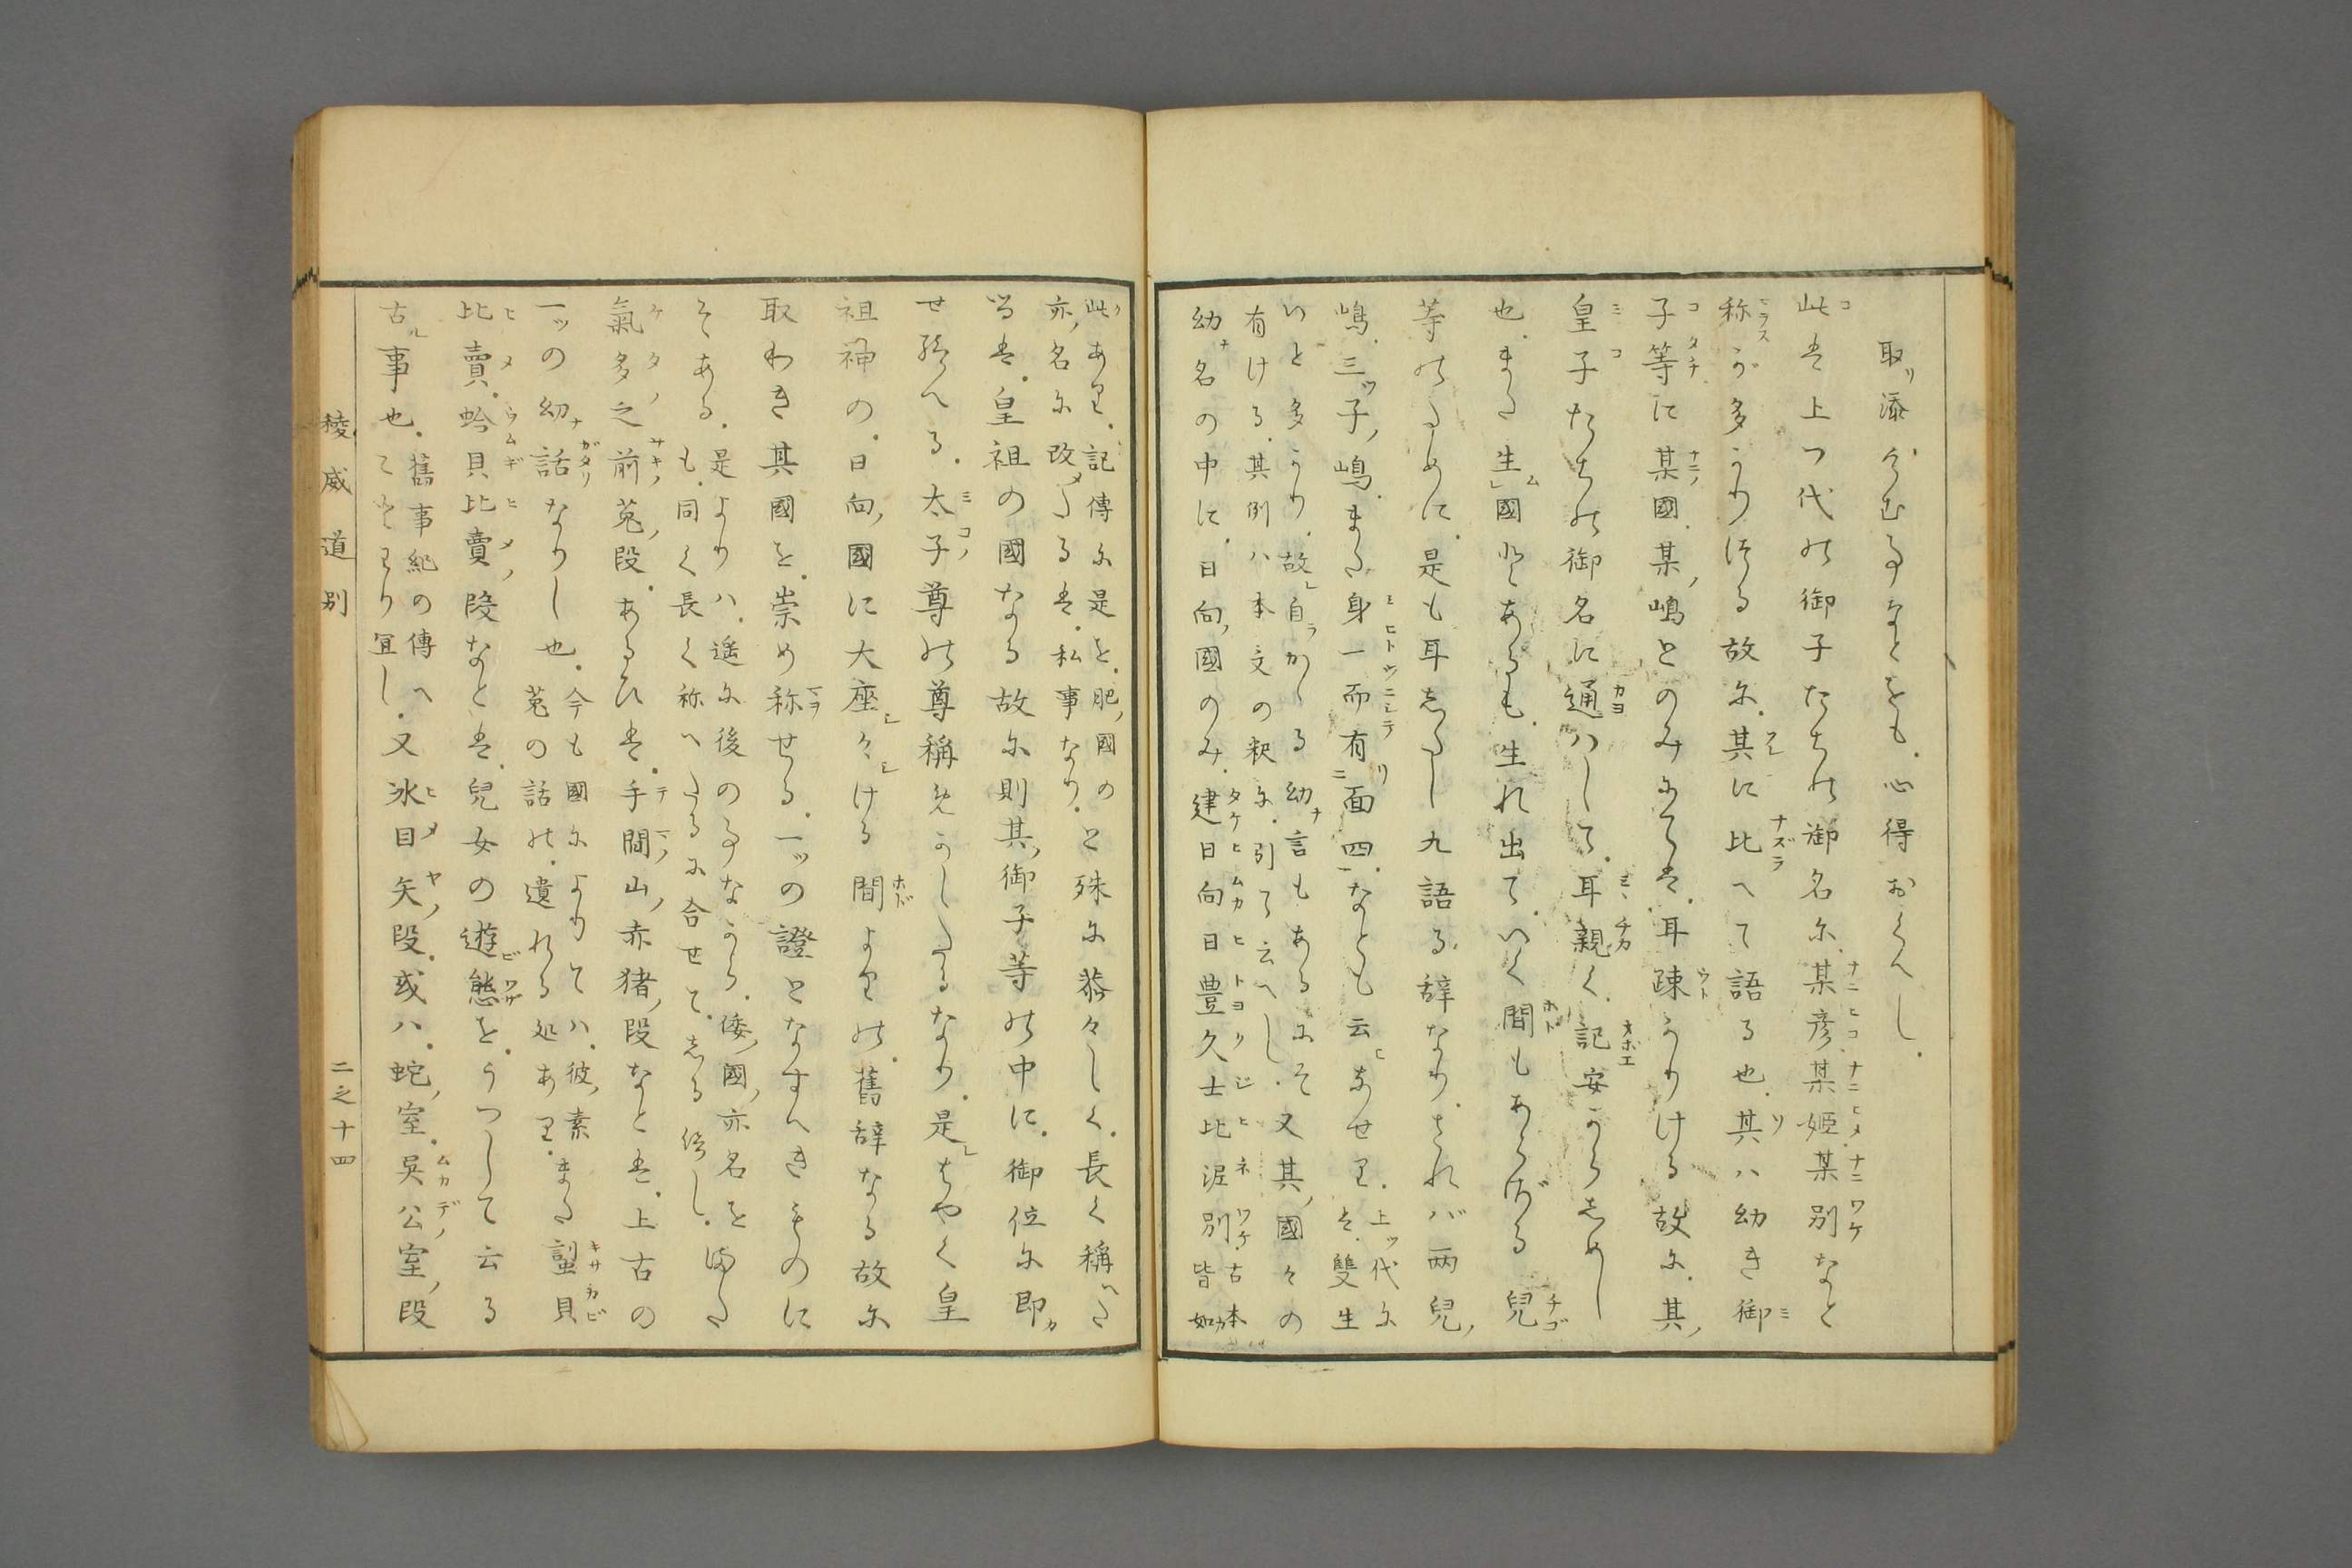 取リ添がむ事などをも。心得おくべし。
此は上つ代の御子たちの御名に。某彦。某姫。某別など
称すが多かりける故に。其に比へて語る也。其ハ幼き御
子等に某國。某ノ嶋とのみにては。耳疎かりける故に。其ノ
皇子たちの御名に通ハして。耳親く。記安からしめし
也。また生ム國とあるも。生れ出て。いく間もあらざる兒
等のために。是も耳ちかく語る辞なり。されバ両兒ノ
嶋。三ッ子ノ嶋。また身一而有面四。なども云なせり。上ッ代に
は。雙生
いと多かり。故自ラかゝる幼言もあるにそ又其ノ國々の
有ける。其例ハ本文の釈に。引て云へし。
幼名の中に。日向ノ國のみ。建日向日豊久士比泥別。古本
皆如
此あり。記傳に是を。肥ノ國の
亦ノ名に改メたるは。私事なり。と殊に恭々しく。長く稱へた
るは。皇祖の國なる故に則其ノ御子等の中に。御位に即カ
せ給へる。太子ノ尊の尊稱なり。是はやく皇
祖神の。日向ノ國に大座々ける間よりの。舊辞なる故に
取わき其國を。崇め称せる。一ッの證となすへきものに
そある。是よりハ。遥に後の事なから。倭ノ國ノ亦名を
も。同く長く称へたるに合せて。しる。また
氣多之前ノ菟ノ段。あるひは。手間ノ山ノ赤猪ノ段なとは。上古の
一ッの幼話なりし也。今も國によりてハ。彼ノ素
菟の話の。遺れる処あり。また𧏛貝
比賣。蛤貝比賣ノ段なとは。兒女の遊態を。うつして云る
古事也。舊事紀の傳へ
宜し。又氷目矢ノ段。或ハ。蛇ノ室。呉公ノ室ノ段
稜威道別
二之十四